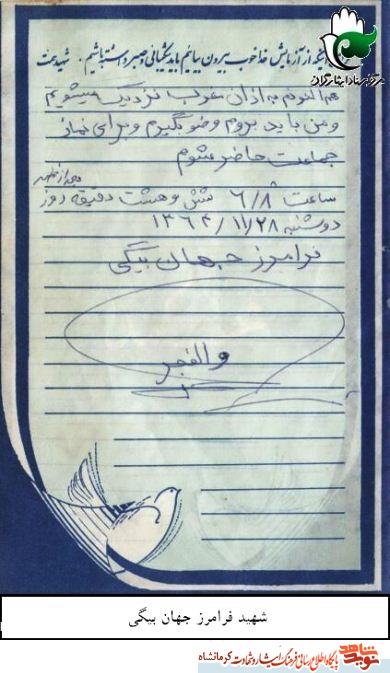 اینکه از آزمایش خدا خوب بیرون بیائیم باید شکیبائی و صبر داشته باشیم . شهید محبت
هم اکنون به اذان مغرب نزدیک میشویم
و من باید بروم وضو بگیرم و برای نماز
جماعت حاضر شوم
ساعت ۶/۸ شش و هشت دقیقه روز بعد از ظهر
دوشنبه ۱۳۶۴/۱۱/۲۸
فرامرز جهان بیگی
والفجر
شهید فرامرز جهان بیگی
نوید شاهد
پایگاه اطلاع رسانی فرهنگ ایثار و شهادت کرمانشاه